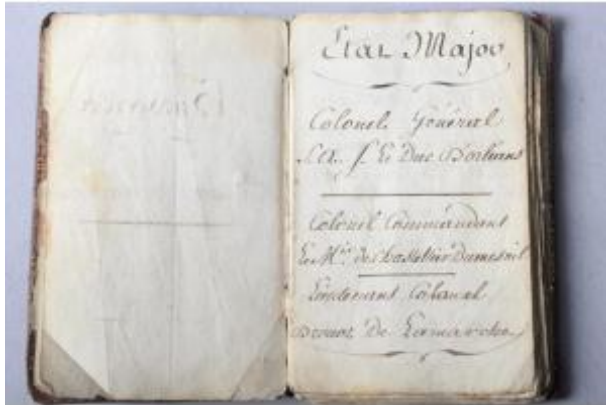 Etat Major
Colonel Général
S. A. S. Le Duc D'orleans
Colonel Commandant
Le M.is de Chastellier Dumesnil
Lieutenant Colonel
Drouot De